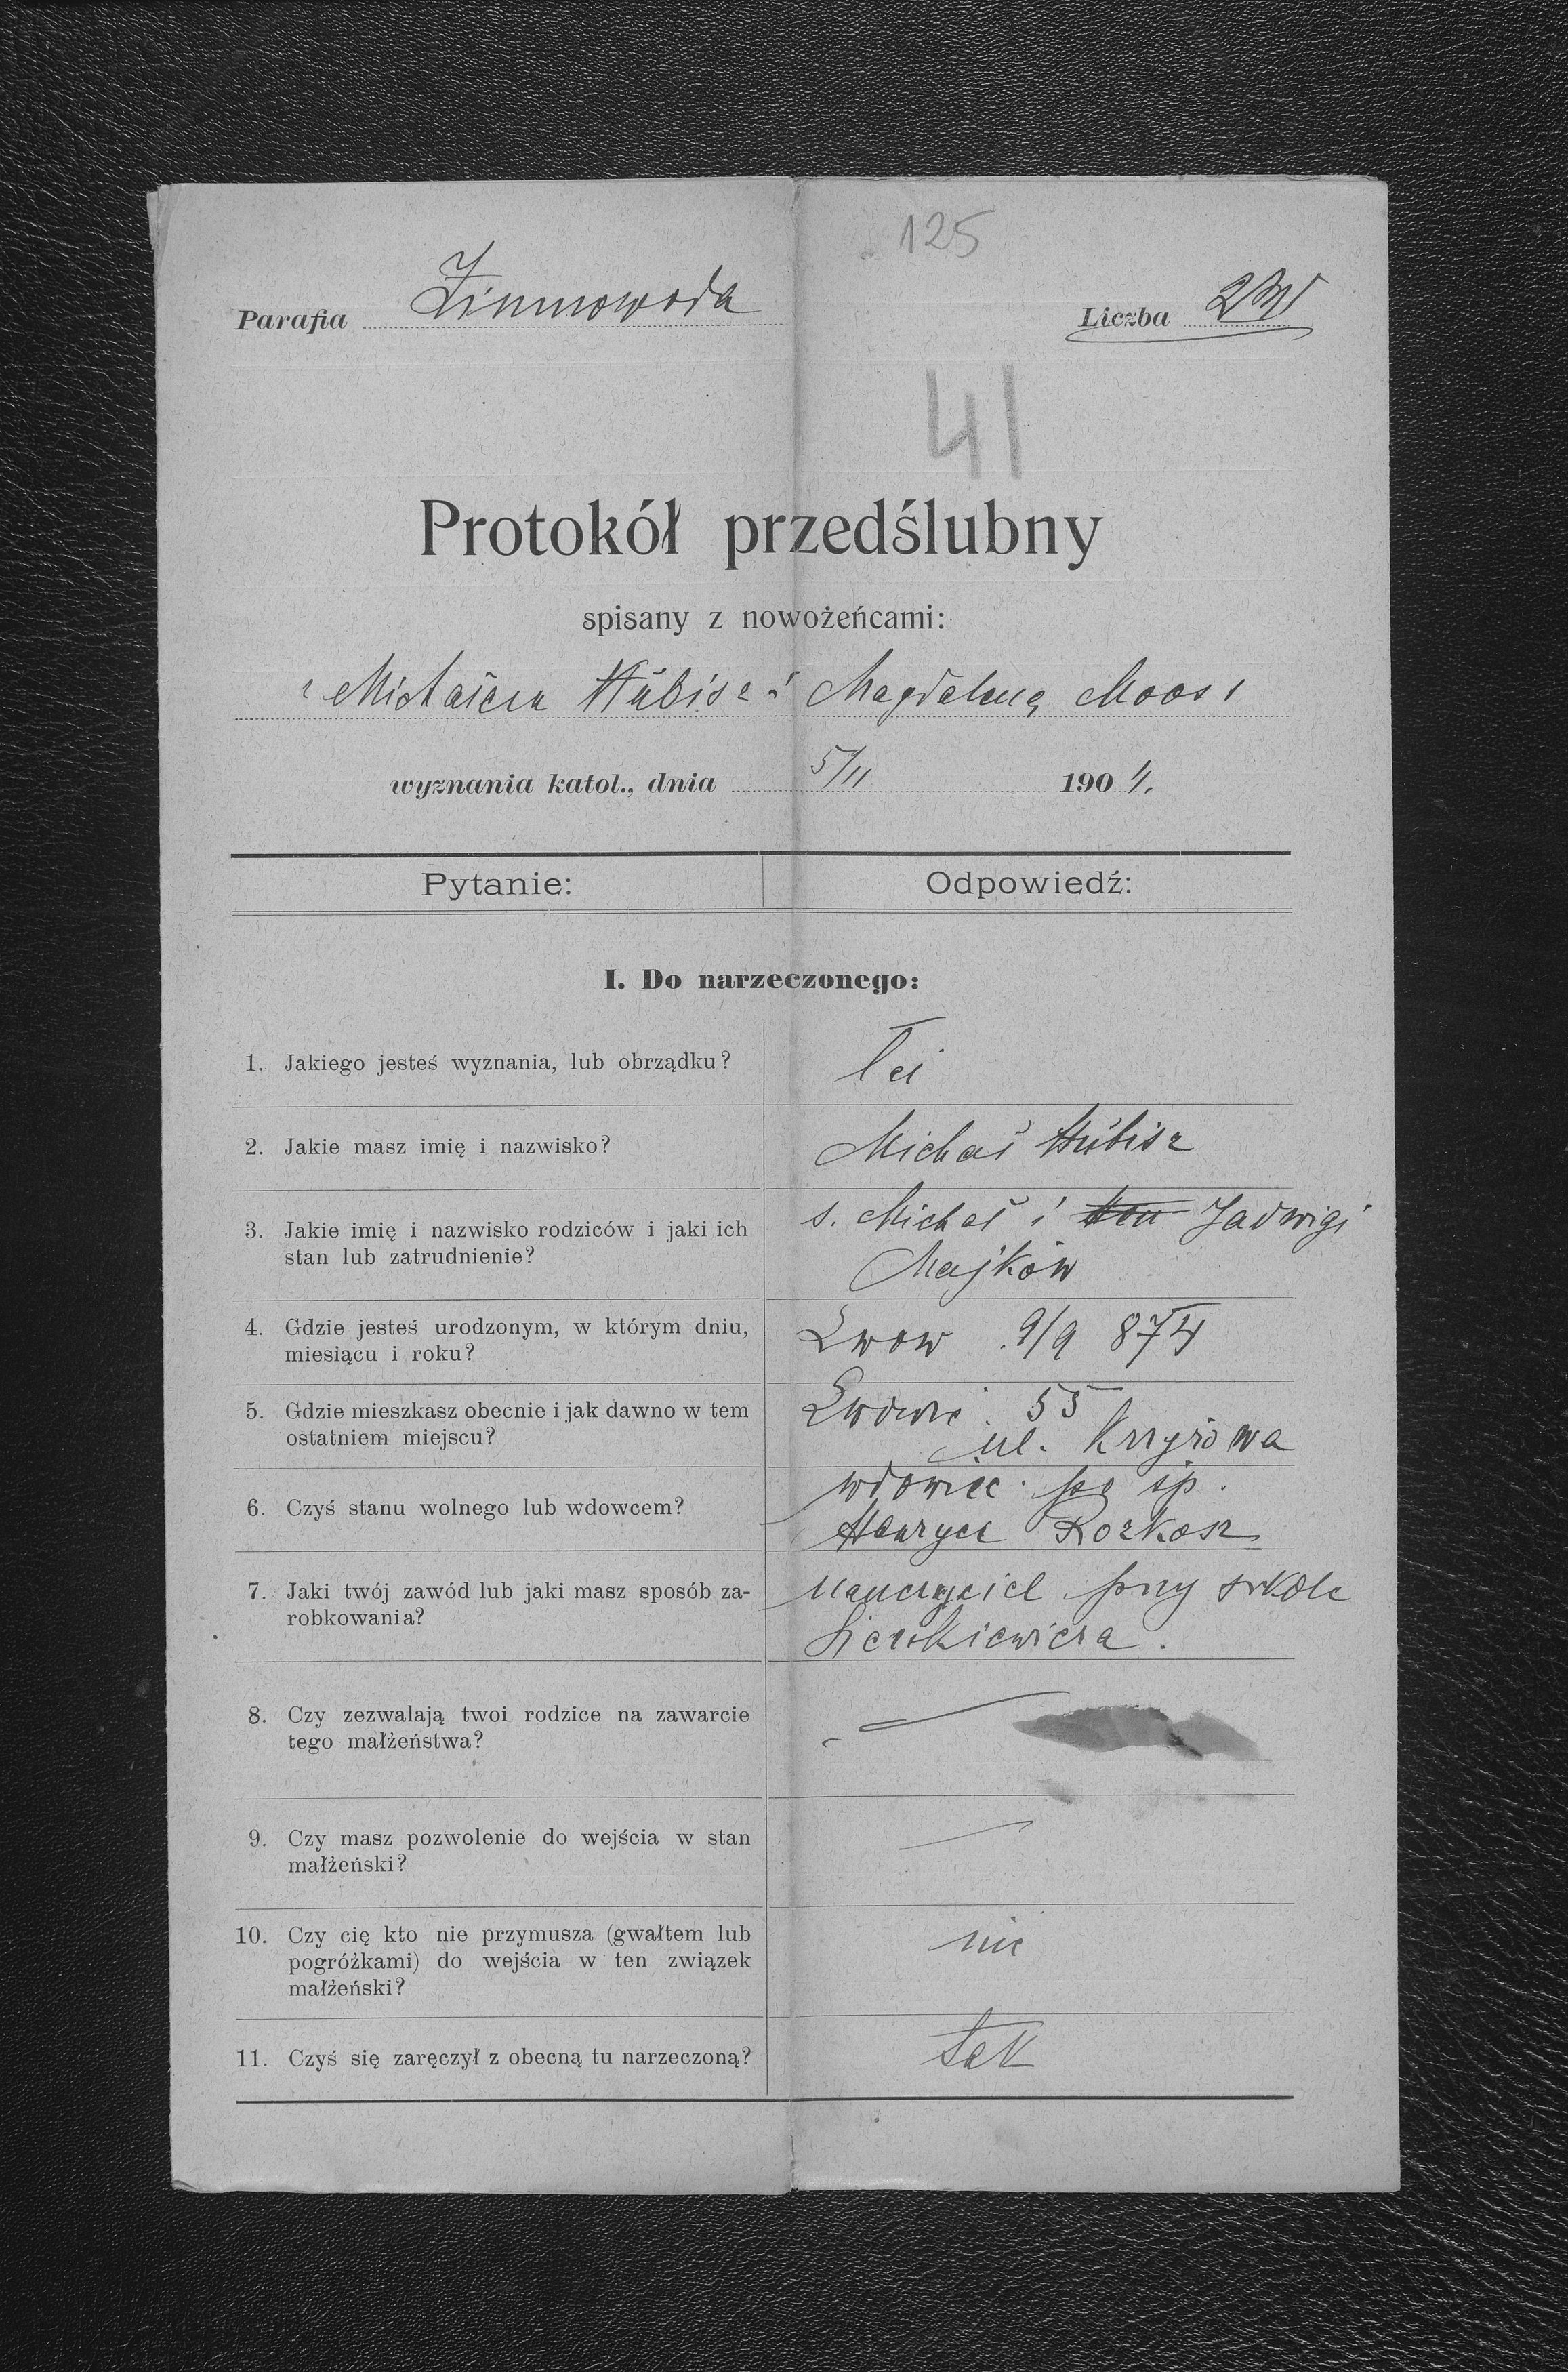 125
Parafia Zimnowoda Liczba
41
Protokół przedślubny
spisany z nowożeńcami:
Michałem Hübisz i Magdaleną Moos
wyznania katol., dnia 5/11 190 4.
Pytanie: Odpowiedź:
I. Do narzeczonego:
1. Jakiego jesteś wyznania, lub obrządku?
2. Jakie masz imię i nazwisko? Michał Hübisz
3. Jakie imię i nazwisko rodziców i jaki ich s. Michał i Jadwigi
stan lub zatrudnienie? Majków
4. Gdzie jesteś urodzonym, w którym dniu, Lwow 9/9 874
miesiącu i roku?
5. Gdzie mieszkasz obecnie i jak dawno w tem Lwowie 55
ostatniem miejscu? ul. Krzyżowa
6. Czyś stanu wolnego lub wdowcem? wdowiec po śp.
Henryce Rozkosz
7. Jaki twój zawód lub jaki masz sposób za- nauczyciel przy szkole
robkowania? Sienkiewicza.
8. Czy zezwalają twoi rodzice na zawarcie
tego małżeństwa?
9. Czy masz pozwolenie do wejścia w stan
małżeński?
10. Czy cię kto nie przymusza (gwałtem lub nie
pogróżkami) do wejścia w ten związek
małżeński?
11. Czyś się zaręczył z obecną tu narzeczoną? tak